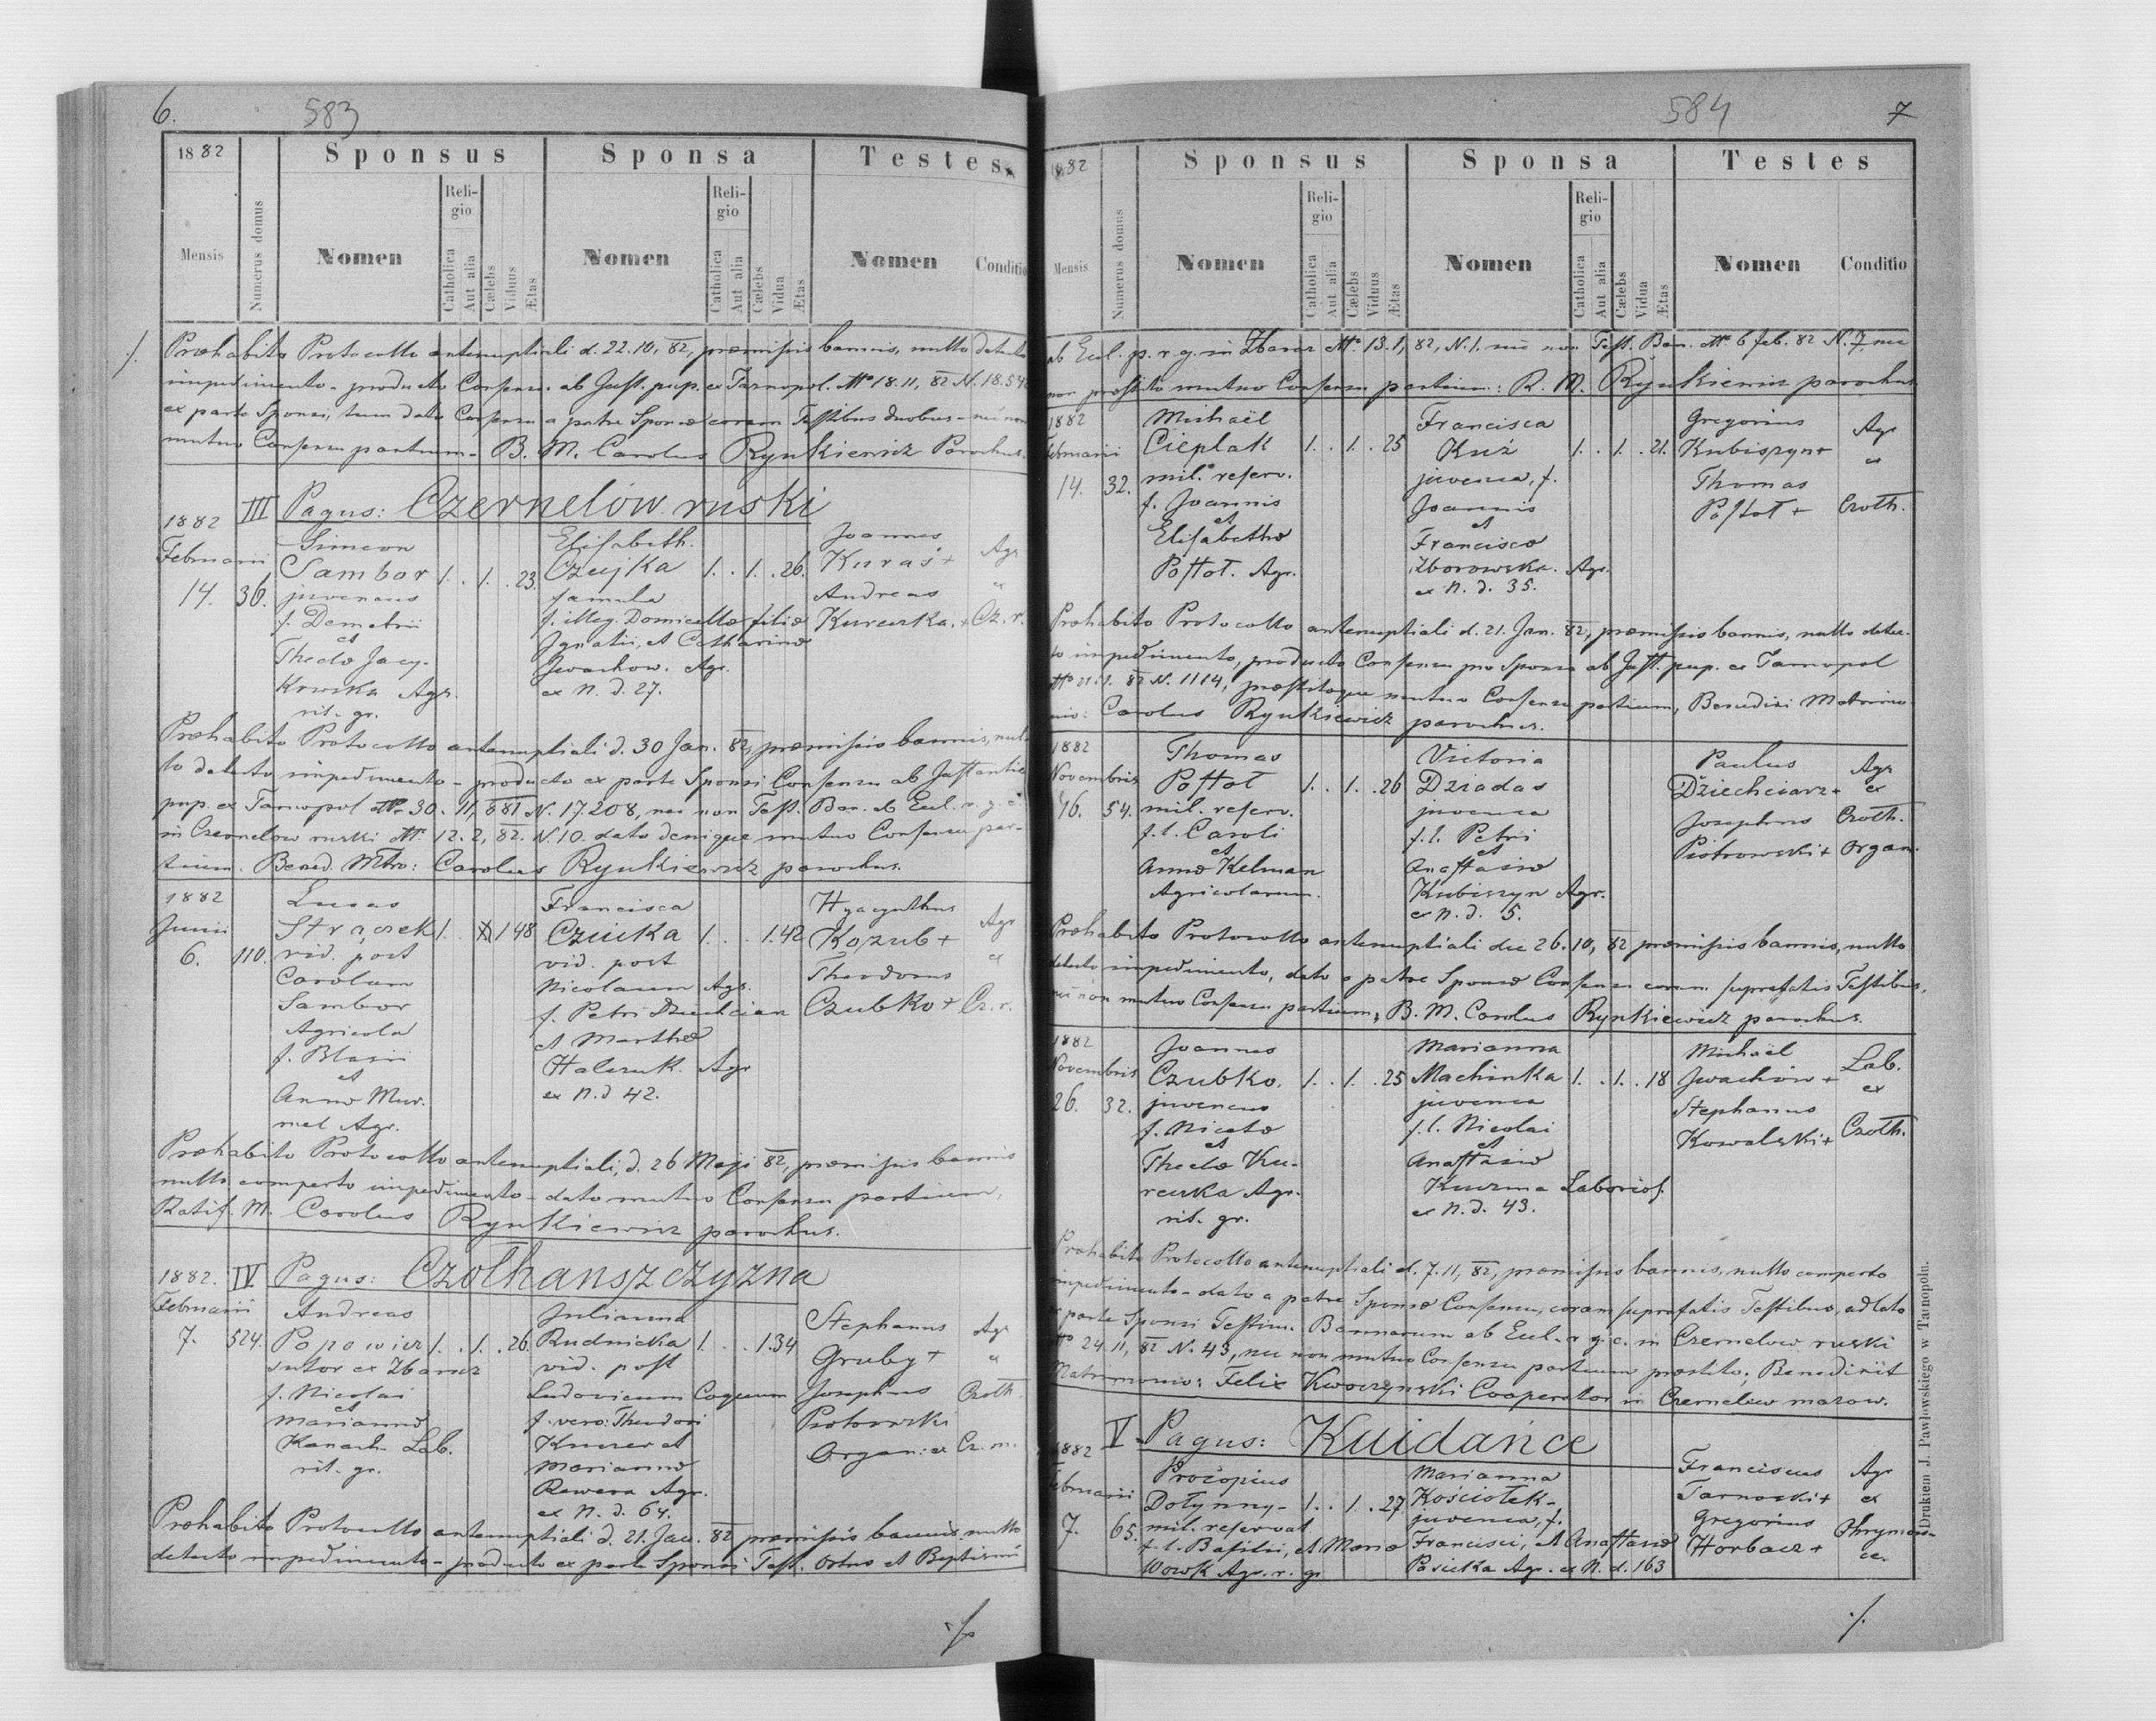 6.
583
1882
Sponsus
Sponsa
Testes
Mensis
Numerus domus
Nomen
Reli-
gio
Catholica
Aut alia
Cælebs
Viduus
Ætas
Nomen
Reli-
gio
Catholica
Aut alia
Cælebs
Vidua
Ætas
Nomen
Conditio
./.
Præhabito Protocollo antenuptiali d. 22.10, 82, præmissis bannis, nullo detecto
impedimento - producto Consensu ab Just. pup. ex Tarnopol. 18.11, 82 N. 18.542
ex parte Sponsi, tum dato Consensu a patre Sponsæ coram Testibus duobus - nec non
mutuo Consensu partium - B. M. Carolus Rynkiewicz Parochus.
III Pagus: Czernelów ruski
1882
Februarii
14.
36.
Simeon
Sambor
juvenis
f. Demetrii
et
Theclæ Jacy-
kowska Agr.
rit. gr.
1. . 1. . 23.
Elisabeth.
Czujka
famula
f. illeg. Domicellæ filiæ
Ignatii, et Catharinæ
Jwachow. Agr.
ex N. d. 27.
1. . 1. . 26.
Joannes
Kuraś +
Andreas
Kurcuska. +
Agr
ex
Cz. r.
Præhabito Protocollo antenuptiali d. 30 Jan. 82, præmissis bannis, nul-
lo detecto impedimento - producto ex parte Sponsi Consensu ab Justantia
pup. ex Tarnopol 30. 11, 881 N. 17.208, nec non Test. Ban. ab Eccl. r. g. c.
in Czernelow ruski 12. 2, 82. N 10. dato denique mutuo Consensu par-
tium. Bened. Mtro: Carolus Rynkiewicz parochus.
1882
Junii
6.
110.
Lucas
Strączek
vid. post
Carolum
Sambor
Agricola
f. Blasii
et
Annæ Mur.
mel Agr.
1. . 1 48
Francisca
Czucka
vid. post
Nicolaum Agr.
f. Petri Dziechciar
et Marthæ
Halczuk. Agr
ex N. d 42.
1. . . 1. 42
Hyacynthus
Kozub +
Theodorus
Czubko +
Agr
ex
Cz. r.
Præhabito Protocollo antenuptiali, d. 26 Maji 82, præmissis bannis
nullo comperto impedimento - dato mutuo Consensu partium,
Ratif. M. Carolus Rynkiewicz parochus.
IV Pagus: Czołhańszczyzna
1882.
Februarii
7.
524.
Andreas
Popowicz
sutor ex Zbaraz
f. Nicolai
et
Mariannæ
Kanach. Lab.
rit. gr.
1. . 1. . 26.
Julianna
Rudnicka
vid. post
Ludovicum Coquum
f. vero: Theodori
Kuczer et
Mariannæ
Rewera Agr.
ex N. d. 64.
1. . . 1 34
Stephanus
Gruby +
Josephus
Piotrowski
Organ: ex Cz. m.
Agr
ex
Czołh.
Præhabito Protocollo antenuptiali d. 21. Jan. 82 præmissis bannis, nullo
detecto impedimento - producto ex parte Sponsi Test. Ortus et Baptismi
./.
584
7
1882
Sponsus
Sponsa
Testes
Mensis
Numerus domus
Nomen
Reli-
gio
Catholica
Aut alia
Cælebs
Viduus
Ætas
Nomen
Reli-
gio
Catholica
Aut alia
Cælebs
Vidua
Ætas
Nomen
Conditio
ab Eccl. p. r. g. in Zbaraz 13. 1, 82, N. 1. nec non Test. Ban. 6 feb. 82 N. 7, nec
non præstito mutuo Consensu partium: R. M. Rynkiewicz parochus.
1882
Februarii
14.
32.
Michaël
Cieplak
mil. reserv.
f. Joannis
et
Elisabethæ
Postoł. Agr.
1. . 1. . 25
Francisca
Kuź
juvenca, f.
Joannis
et
Franciscæ
Zborowska. Agr.
ex N. d. 35.
1. . 1. . 21.
Gregorius
Kubiszyn +
Thomas
Postoł +
Agr
ex
Czołh.
Præhabito Protocollo antenuptiali d. 21. Jan. 82, præmissis bannis, nullo detec-
to impedimento, producto Consensu pro Sponso ab Just. pup. ex Tarnopol
21. 1. 82 N. 1114, præstitoque mutuo Consensu partium, Benedixi Matrimo-
nio: Carolus Rynkiewicz parochus.
1882
Novembris
16.
54.
Thomas
Postoł
mil. reserv.
f. l. Caroli
et
Annæ Kelman
Agricolarum.
1. . 1. . 26
Victoria
Dziadas
juvenca
f. l. Petri
et
Anastasiæ
Kubiszyn Agr.
ex N. d. 5.
Paulus
Dziechciarz +
Josephus
Piotrowski +
Agr
ex
Czołh.
Organ.
Præhabito Protocollo antenuptiali die 26. 10, 82 præmissis bannis, nullo
detecto impedimento, dato a patre Sponsæ Consensu coram suprafatis Testibus,
nec non mutuo Consensu partium, B. M. Carolus Rynkiewicz parochus.
1882
Novembris
26.
32.
Joannes
Czubko.
juvencus
f. Nicetæ
et
Theclæ Ku-
rcuska Agr.
rit. gr.
1. . 1. . 25
Marianna
Machinka
juvenca
f. l. Nicolai
et
Anastasiæ
Kuczma Laborios.
ex N. d. 43.
1. . 1. . 18
Michaël
Jwachów +
Stephanus
Kowalski +
Lab.
ex
Czołh.
Præhabito Protocollo antenuptiali d. 7. 11, 82, præmissis bannis, nullo comperto
impedimento - dato a patre Sponsæ Consensu, coram suprafatis Testibus, adlato
ex parte Sponsi Testim. Bannorum ab Eccl. r. g. c. in Czernelow ruski
24 11, 82 N. 43, nec non mutuo Consensu partium præstito. Benedixit
Matrimonio: Felix Kwoczynski Cooperator in Czernelow mazow.
V Pagus: Kuidańce
1882
Februarii
7.
65.
Procopius
Dołynny -
mil. reservat
f. l. Basilii, et Mariæ
Wowk Agr. r. gr
1. . 1. . 27.
Marianna
Kościołek -
juvenca, f.
Francisci, et Anastasiæ
Pasicka Agr. ex N. d. 163
Franciscus
Tarnoski +
Gregorius
Horbacz +
Agr
ex
Ohrymow-
ce.
Drukiem J. Pawłowskiego w Tarnopolu.
./.